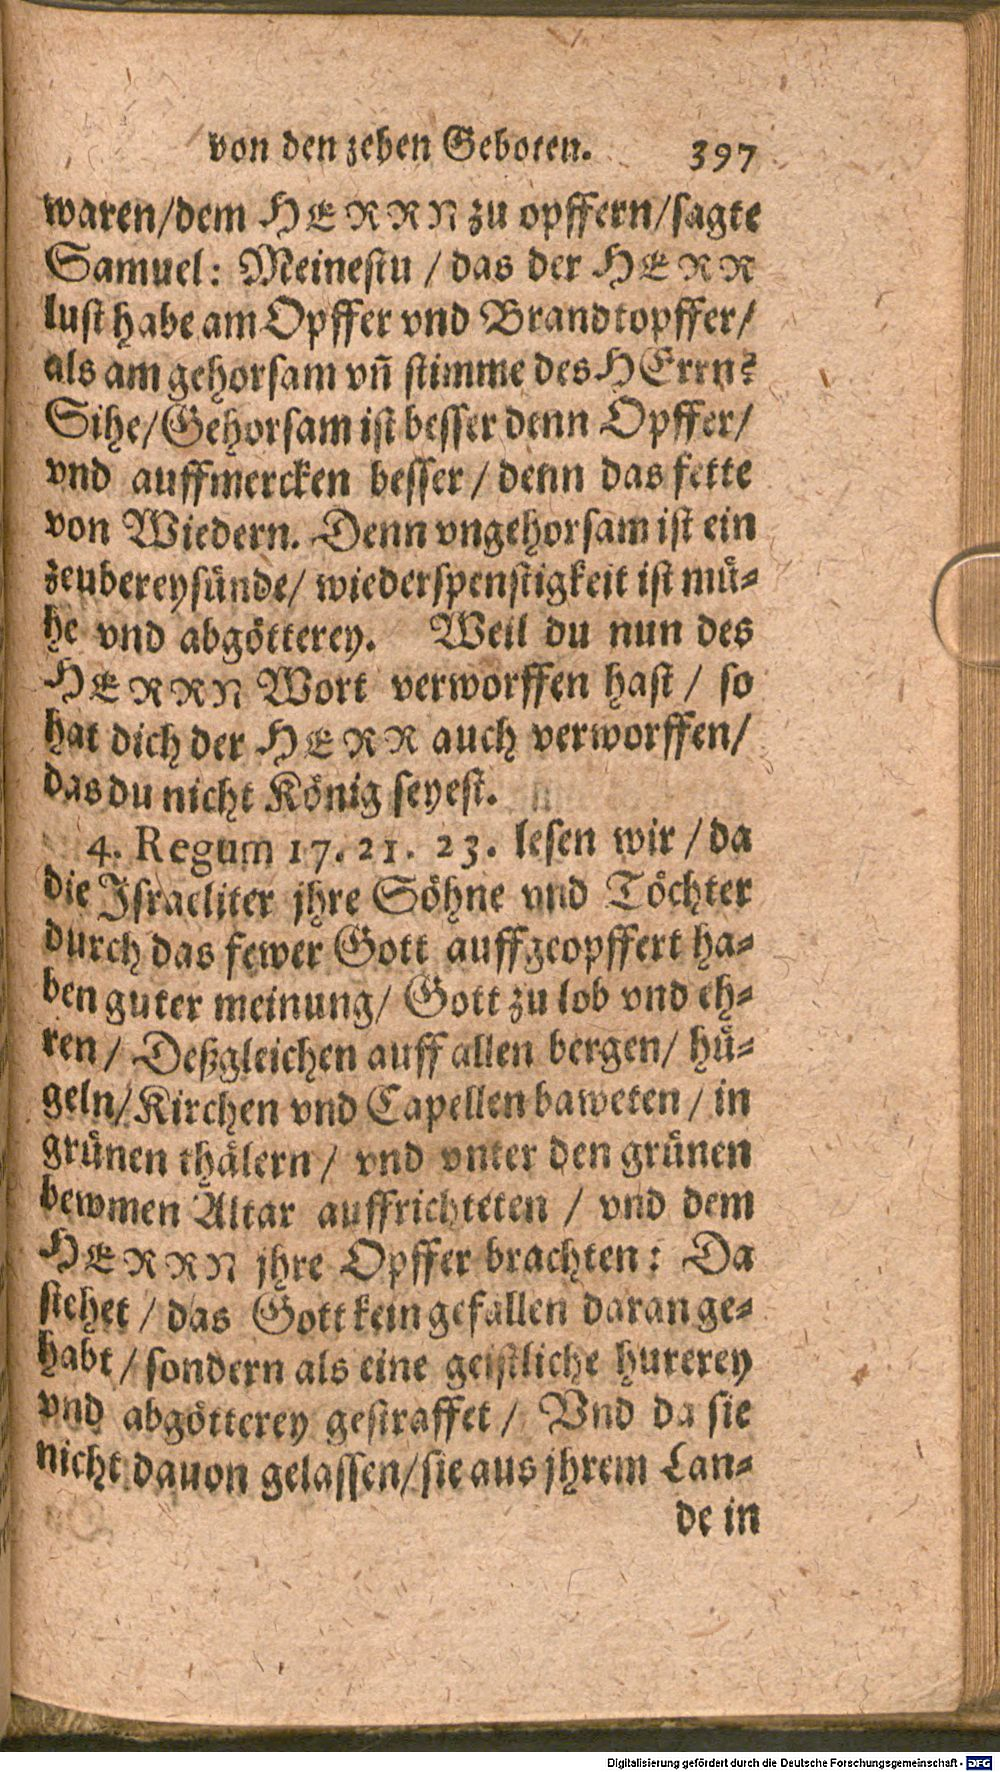 von den zehen Geboten. 397
waren/dem HERRN zu opffern/sagte
Samuel: Meinestu / das der HERR
lust habe am Opffer vnd Brandtopffer/
als am gehorsam vñ stimme des HErrn?
Sihe/Gehorsam ist besser denn Opffer/
vnd auffmercken besser / denn das fette
von Wiedern. Denn vngehorsam ist ein
zeubereysünde/ wiederspenstigkeit ist mü-
he vnd abgötterey. Weil du nun des
HERRN Wort verworffen hast / so
hat dich der HERR auch verworffen/
das du nicht König seyest.
4. Regum 17. 21. 23. lesen wir / da
die Israeliter jhre Söhne vnd Töchter
durch das fewer Gott auffgeopffert ha-
ben guter meinung/ Gott zu lob vnd eh-
ren / Deßgleichen auff allen bergen/ hü-
geln/ Kirchen vnd Capellen baweten / in
grünen thälern / vnd vnter den grünen
bewmen Altar auffrichteten / vnd dem
HERRN jhre Opffer brachten: Da
stehet / das Gott kein gefallen daran ge-
habt / sondern als eine geistliche hurerey
vnd abgötterey gestraffet / Vnd da sie
nicht dauon gelassen/sie aus jhrem Lan-
de in
Digitalisierung gefördert durch die Deutsche Forschungsgemeinschaft - DFG